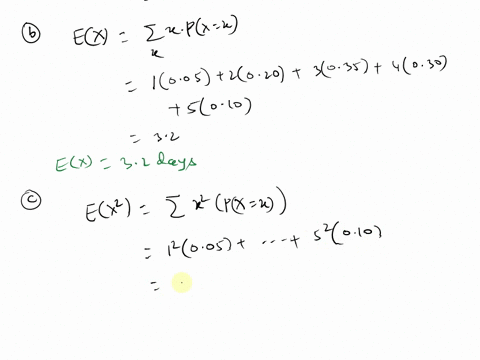 (b) E(X) = ∑ x·P(X=x)
x
= 1(0.05)+2(0.20)+ 3(0.35)+ 4(0.30)
+5(0.10)
= 3.2
E(X) = 3.2 days
(c) E(X²) = ∑ x² (P(X=x))
= 1²(0.05)+ ---+ 5²(0.10)
=